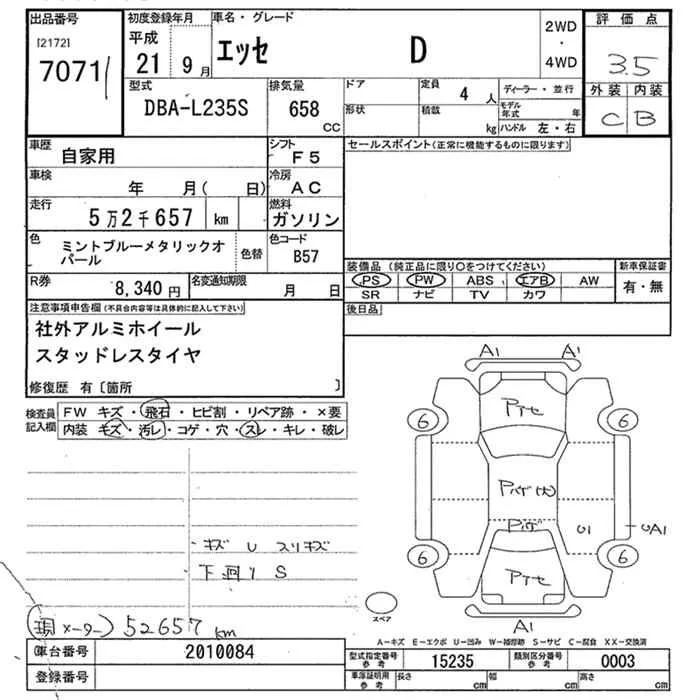 出品番号
[2172]
7071
初度登録年月
平成
21 9月
車名・グレード
エッセ D
2WD
・
4WD
評価点
3.5
外装 内装
C B
型式
DBA-L235S
排気量
658
CC
ドア
形状
定員
4人
積載
kg
ディーラー・並行
モデル年式 年
ハンドル 左・右
車歴
自家用
シフト
F5
セールスポイント(正常に機能するものに限ります)
車検
年 月( 日)
冷房
AC
走行
5万2千657 km
燃料
ガソリン
色
ミントブルーメタリックオパール
色替
色コード
B57
装備品 (純正品に限り○をつけてください)
PS PW ABS エアB AW
SR ナビ TV カワ
新車保証書
有・無
R券
8,340円
名変通知期限
月 日
後日品
注意事項申告欄(不具合内容等は具体的に記入して下さい)
社外アルミホイール
スタッドレスタイヤ
修復歴 有〔箇所 〕
検査員記入欄
FW キズ・飛石・ヒビ割・リペア跡・×要
内装 キズ・汚レ・コゲ・穴・スレ・キレ・破レ
キズ U スリキズ
下廻り S
現メーター 52657 km
A1 A1
6 6
Pアセ
Pハゲ(大)
Pハゲ
U1
UA1
6 6
Pアセ
A1
スペア
A-キズ E-エクボ U-凹み W-補修跡 S-サビ C-腐食 XX-交換済
車台番号
2010084
型式指定番号
参考
15235
類別区分番号
参考
0003
登録番号
車庫証明用
参考
長さ cm
幅 cm
高さ cm